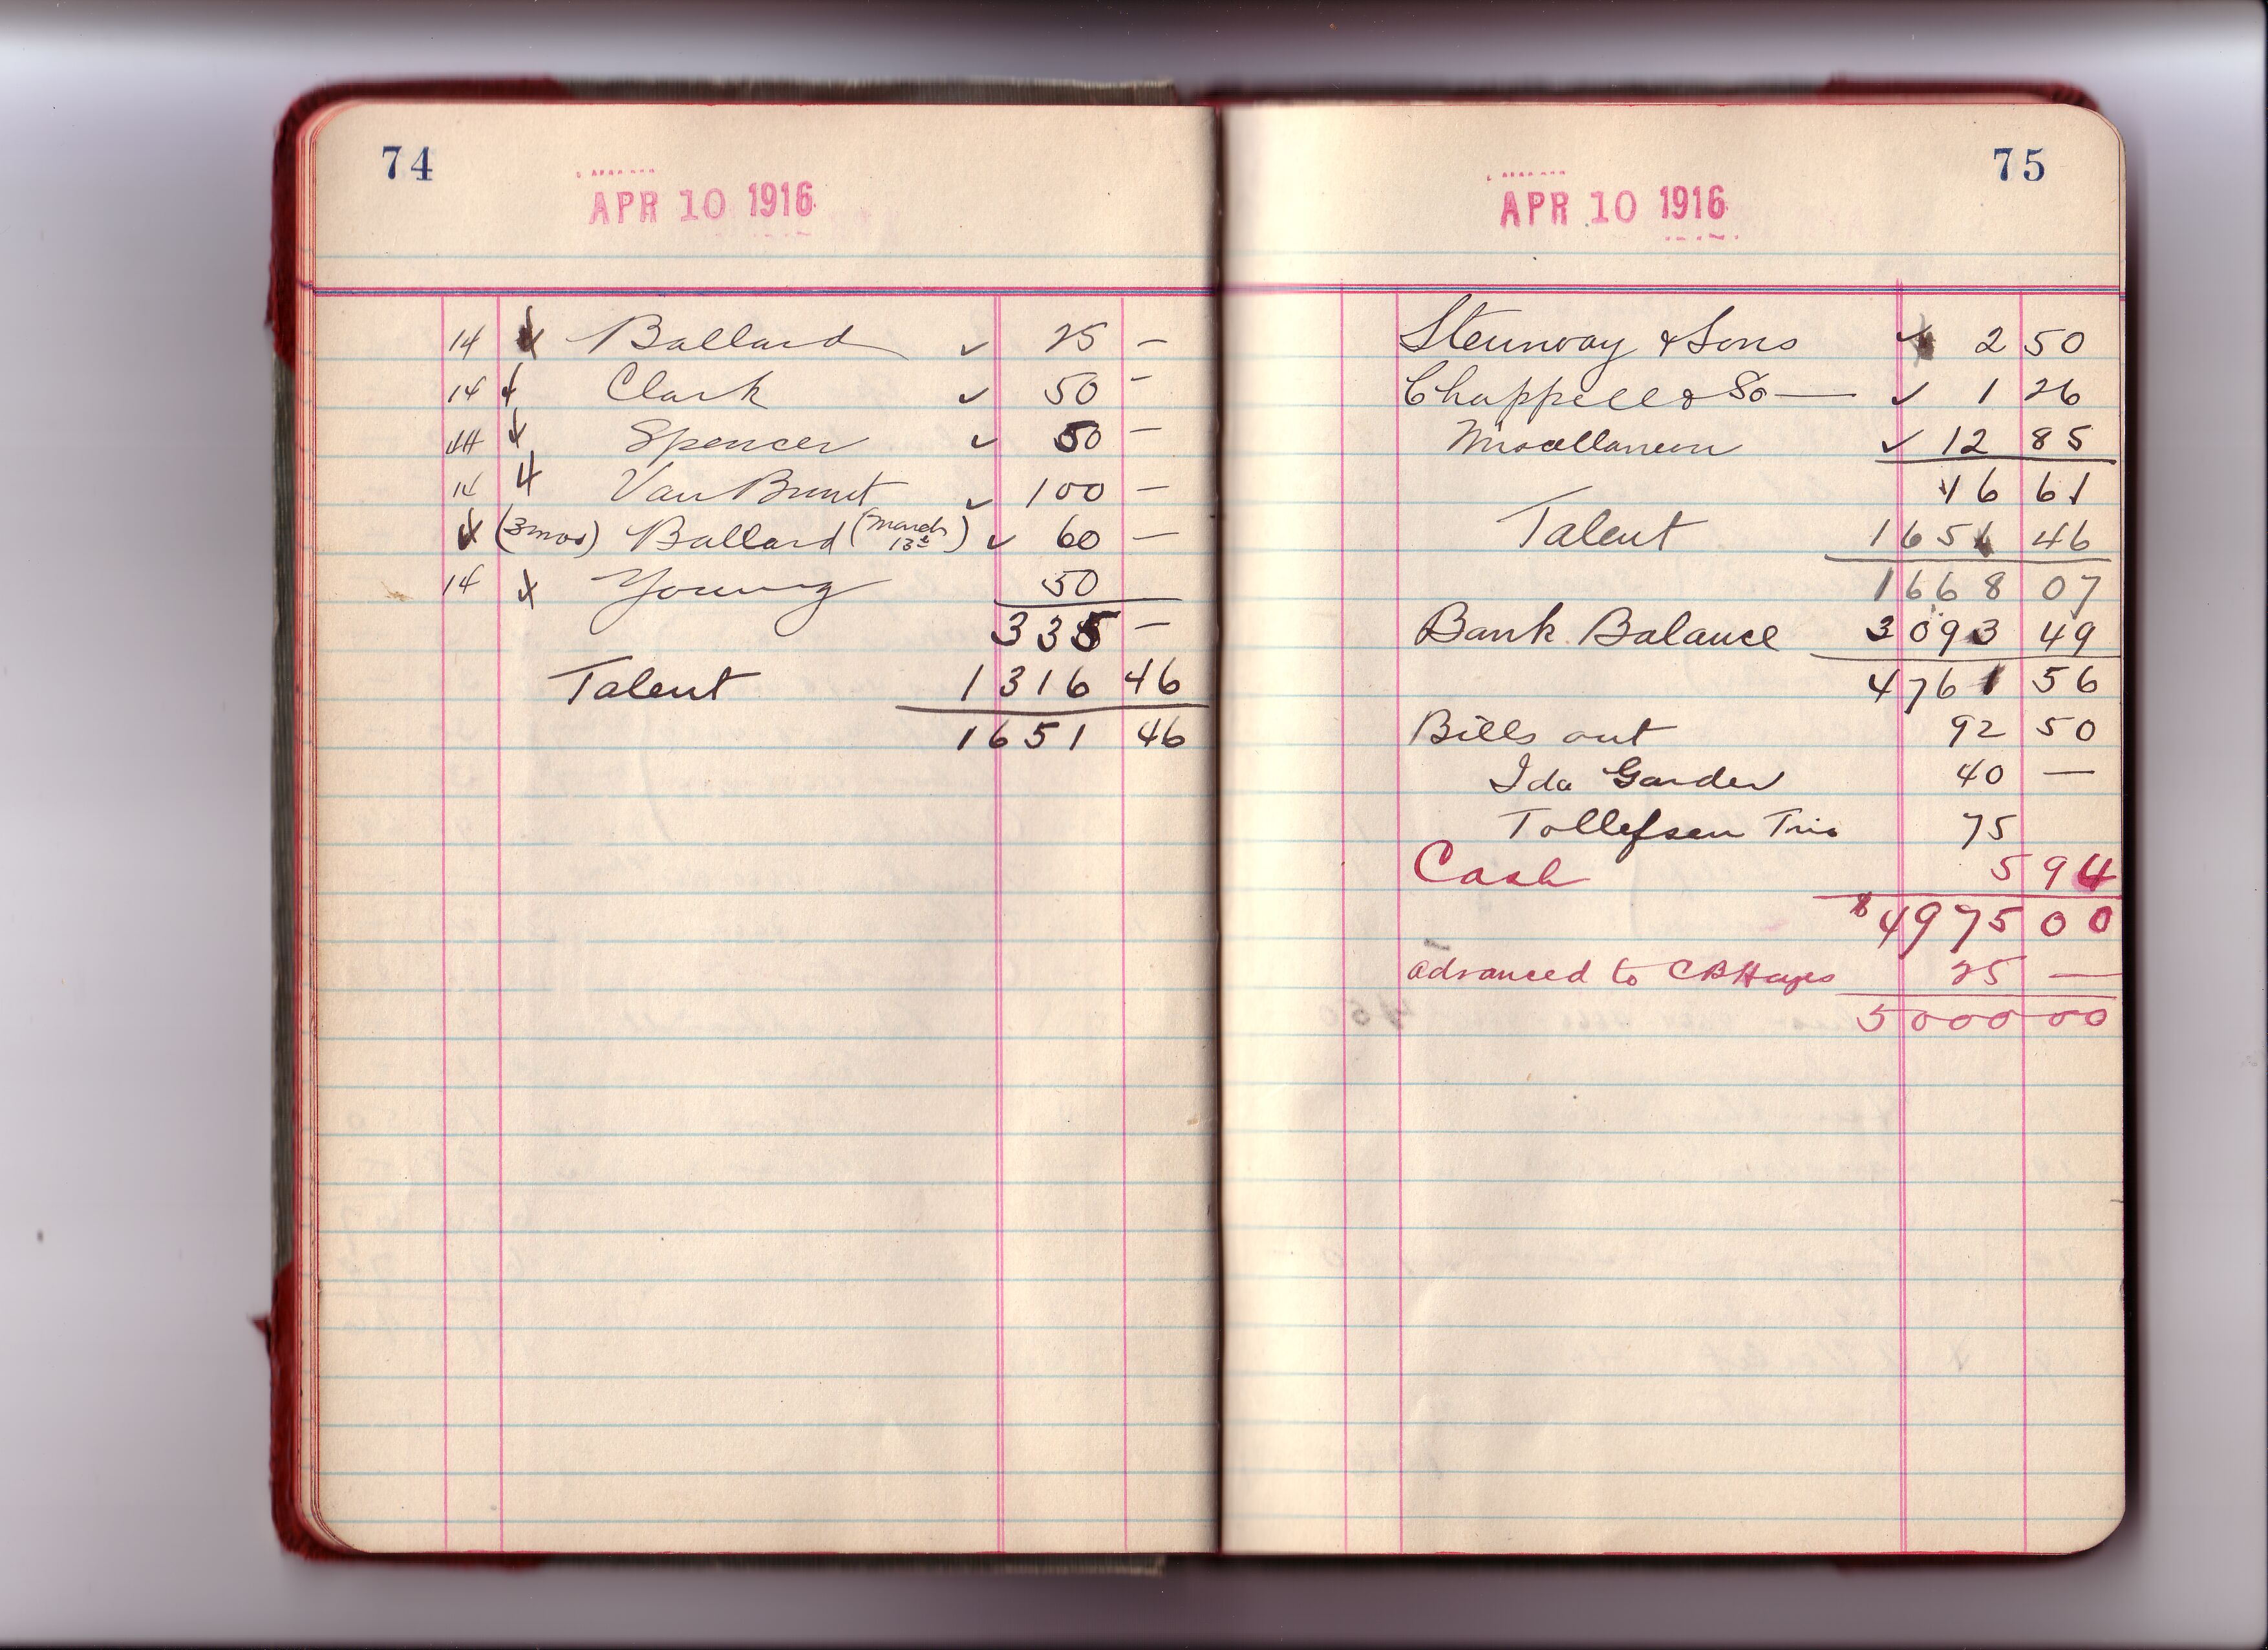 74
APR 10 1916
14 Ballard ✓ 25 —
14 Clark ✓ 50 —
14 Spencer ✓ 50 —
14 Van Brunt ✓ 100 —
(3mos) Ballard (March 13th) ✓ 60 —
14 Young 50
335 —
Talent 1316 46
1651 46
75
APR 10 1916
Steinway & Sons ✓ 2 50
Chappell & Co — ✓ 1 26
Miscellaneous ✓ 12 85
16 61
Talent 1651 46
1668 07
Bank Balance 3093 49
4761 56
Bills out 92 50
Ida Garder 40 —
Tollefsen Trio 75
Cash 5 94
$4975 00
advanced to CB Hayes 25 —
5000 00